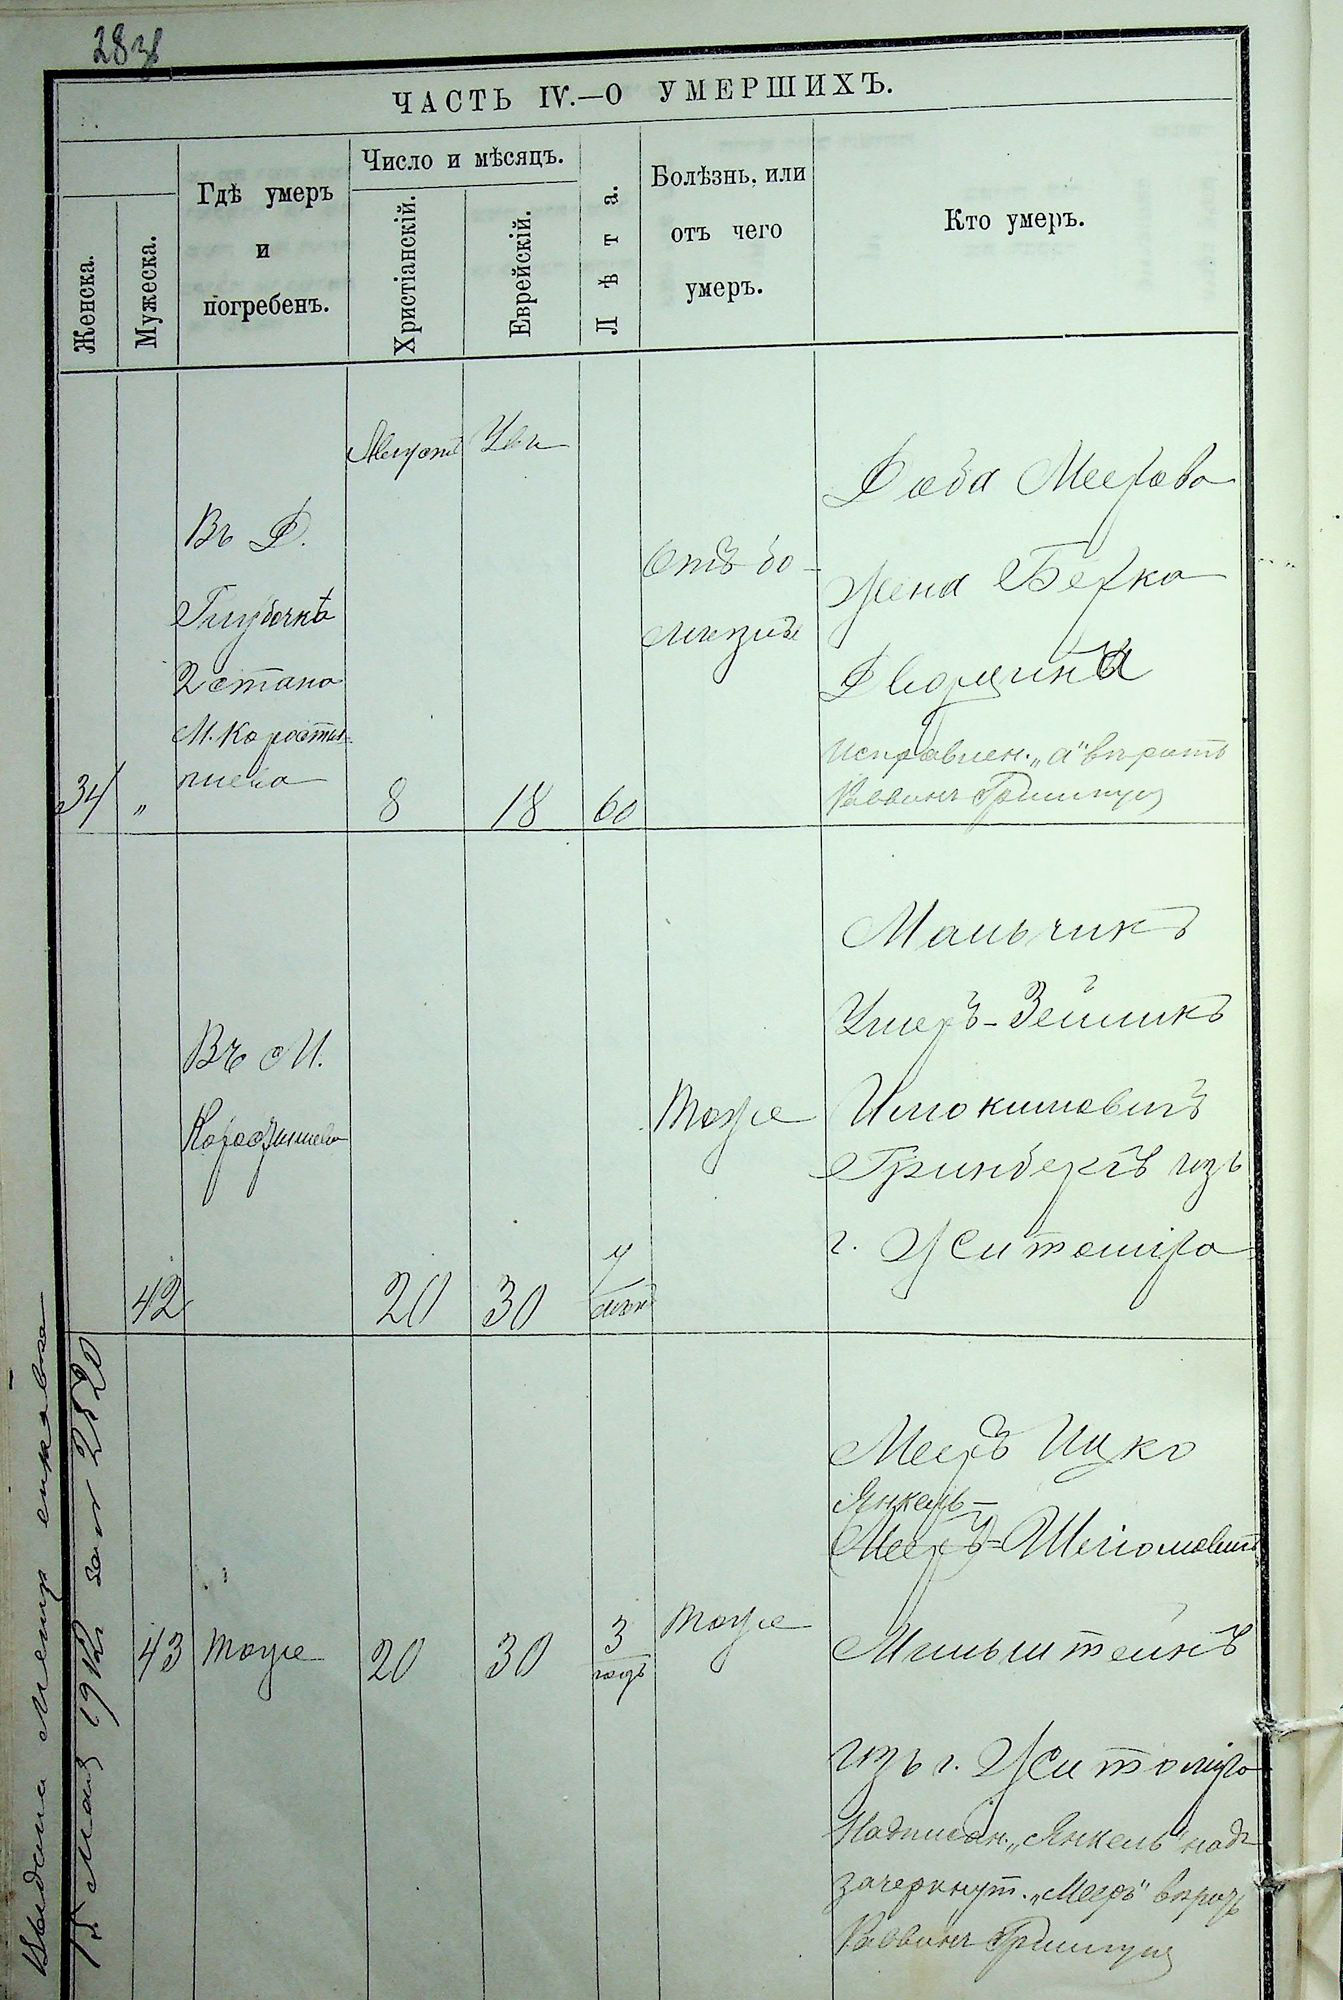 ЧАСТЬ IV.—О УМЕРШИХЪ.
Женска.
Мужеска.
Гдѣ умеръ
и
погребенъ.
Число и мѣсяцъ.
Христіанскій.
Еврейскій.
Лѣта.
Болѣзнь, или
отъ чего
умеръ.
Кто умеръ.
34
"
Въ Д.
Глубочкѣ
2 стана
М. Коросты-
шева
Августъ
8
18
60
Отъ бо-
лезни
Меерова
Жена Берка
Дворщина
Исправлен. „а“ вѣрить
Раввинъ
42
Въ М.
Коростышевѣ
20
30
Тоже
Мальчикъ
Умеръ-Зейликъ
Гринбергъ изъ
г. Житомира
43
Тоже
20
30
3
годъ
Тоже
Мееръ Ицко
Янкель-
Мееръ-Шлiомовичъ
Мильштейнъ
изъ г. Житомiра
Надписан. „Янкель“ надъ
зачеркнут. „Мееръ“ вѣрить
Раввинъ
Выдана Метр
15 Мая 1912 за № 2820